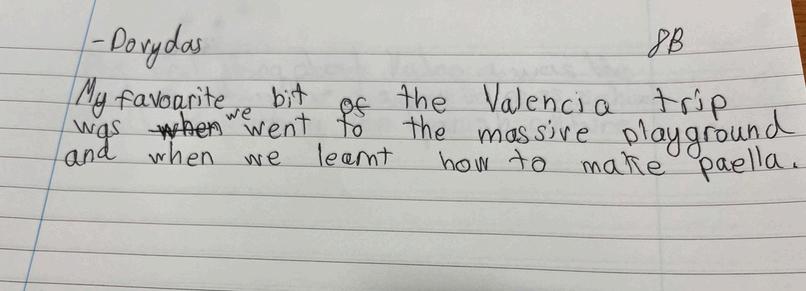 -Dorydas 8B
My favoarite bit of the Valencia trip
was when we went to the massive playground
and when we learnt how to make paella.